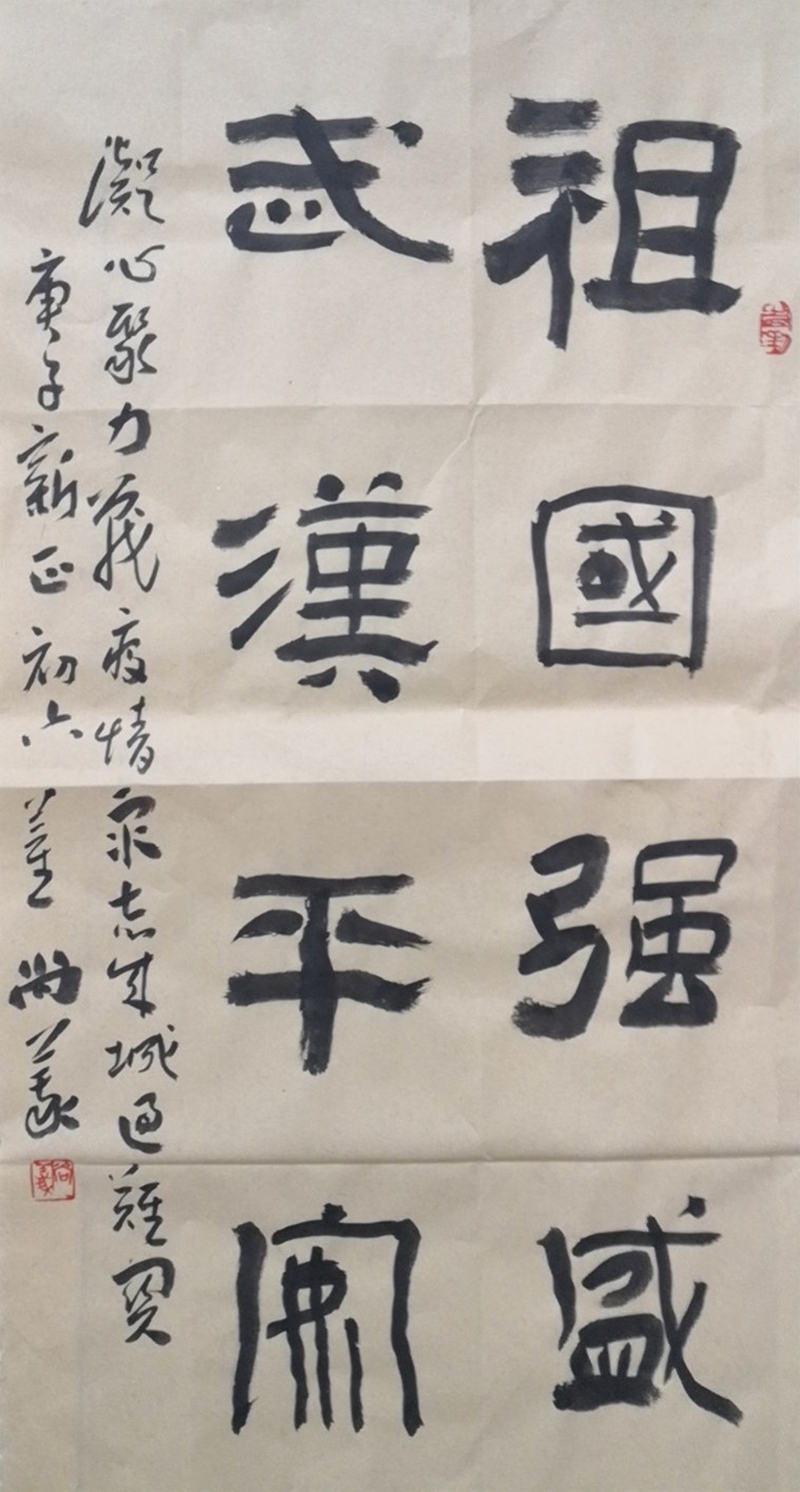 祖國强盛
武漢平
凝心聚力戰疫情衆志成城過難関
庚子新正初六 尚義